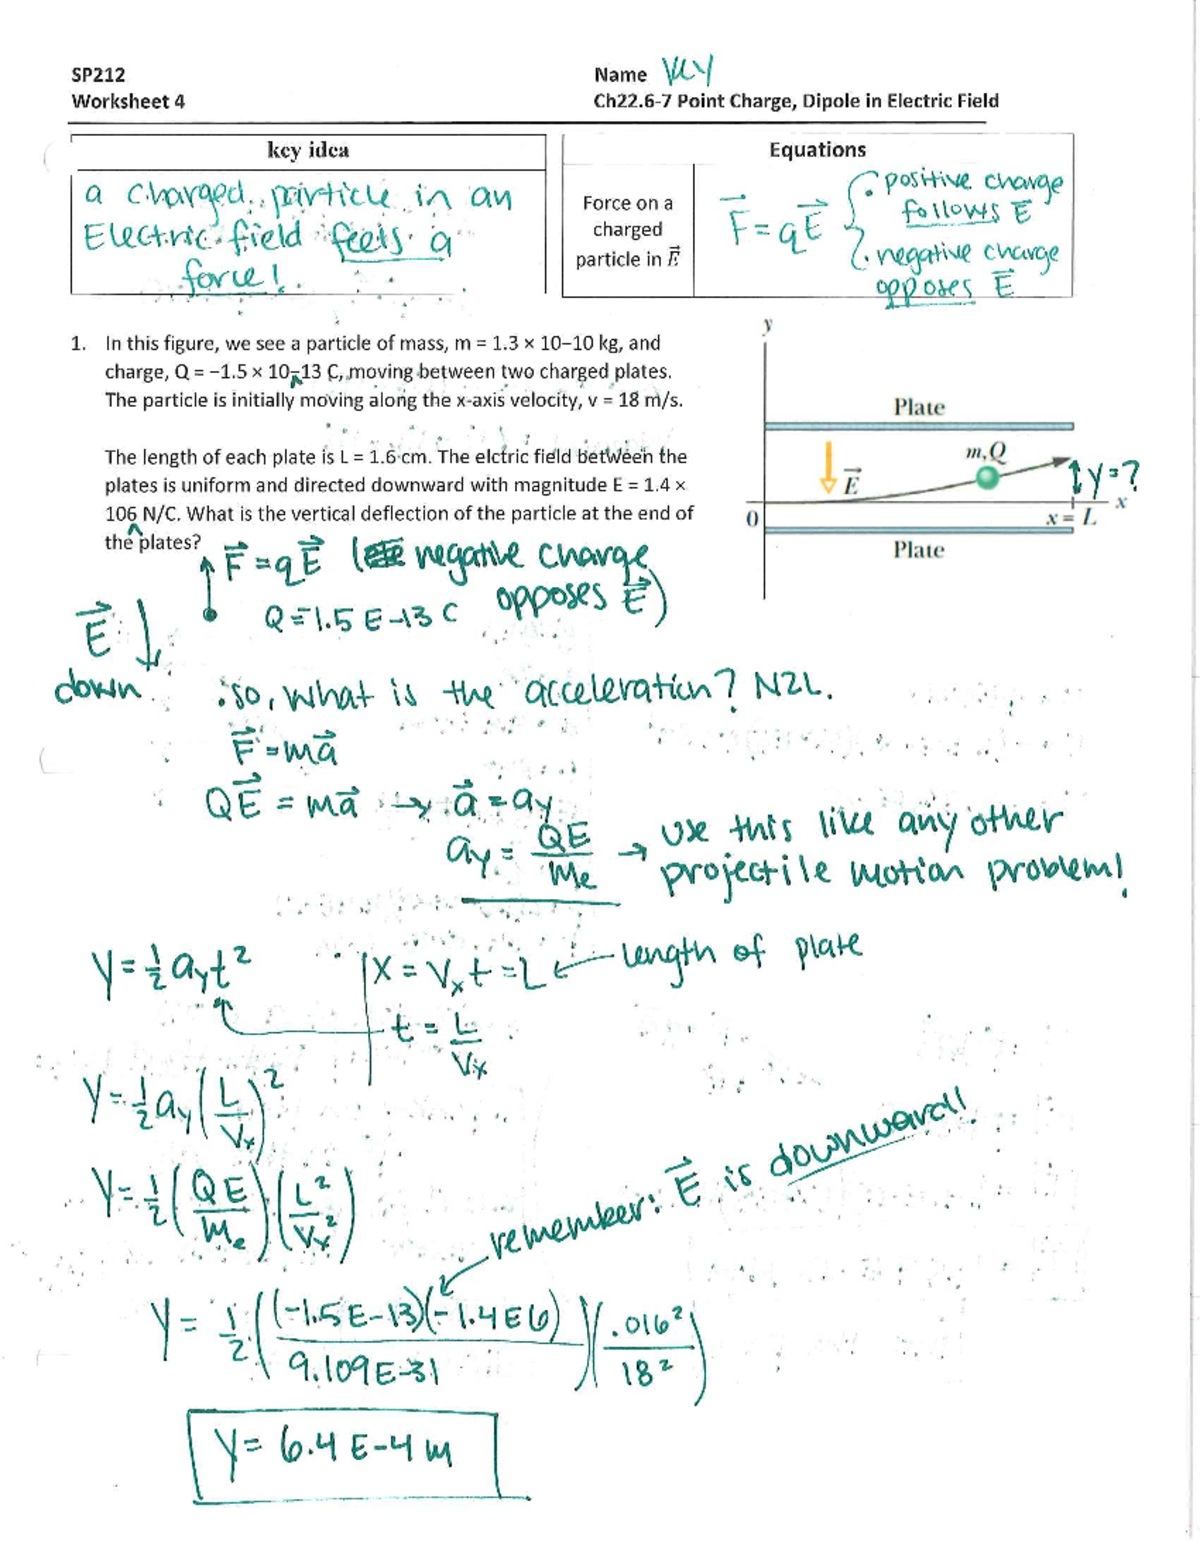 SP212
Name KEY
Worksheet 4
Ch22.6-7 Point Charge, Dipole in Electric Field
key idea
a charged particle in an
Electric field feels a
force!
Equations
Force on a
charged
particle in E⃗
F⃗ = qE⃗
• positive charge
follows E⃗
• negative charge
opposes E⃗
1. In this figure, we see a particle of mass, m = 1.3 × 10–10 kg, and
charge, Q = –1.5 × 10–13 C, moving between two charged plates.
The particle is initially moving along the x-axis velocity, v = 18 m/s.
The length of each plate is L = 1.6 cm. The elctric field between the
plates is uniform and directed downward with magnitude E = 1.4 ×
106 N/C. What is the vertical deflection of the particle at the end of
the plates?
y
Plate
m,Q
E⃗
y=?
0
x = L
x
Plate
F⃗ = qE⃗ ( negative charge
opposes E⃗)
Q = -1.5 E-13 C
E⃗
down
so, what is the acceleration? N2L.
F⃗ = ma⃗
QE⃗ = ma⃗ → a⃗ = ay
ay = QE/Me → use this like any other
projectile motion problem!
y = 1/2 ayt²
x = Vxt = L ← length of plate
t = L/Vx
y = 1/2 ay(L/Vx)²
y = 1/2 (QE/Me)(L²/Vx²)
remember: E⃗ is downward!!
y = 1/2 ((-1.5E-13)(-1.4E6)/9.109E-31)(.016²/18²)
y = 6.4 E-4 m